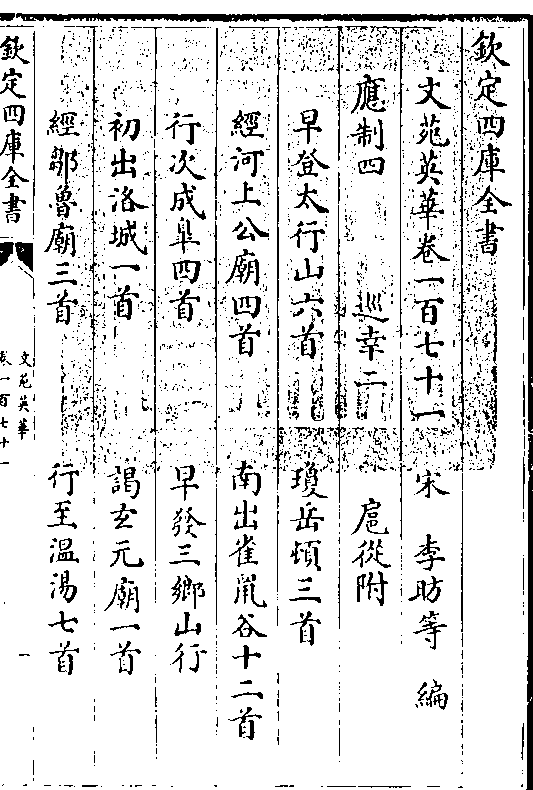 欽定四庫全書
文苑英華卷一百七十一 宋 李昉等 編
應制四 巡幸二 扈從附
早登太行山六首 瓊岳頓三首
經河上公廟四首 南出雀鼠谷十二首
行次成皐四首 早發三鄉山行
初出洛城一首 謁玄元廟一首
經鄒魯廟三首 行至溫湯七首
欽定四庫全書
文苑英華
卷一百七十一
一